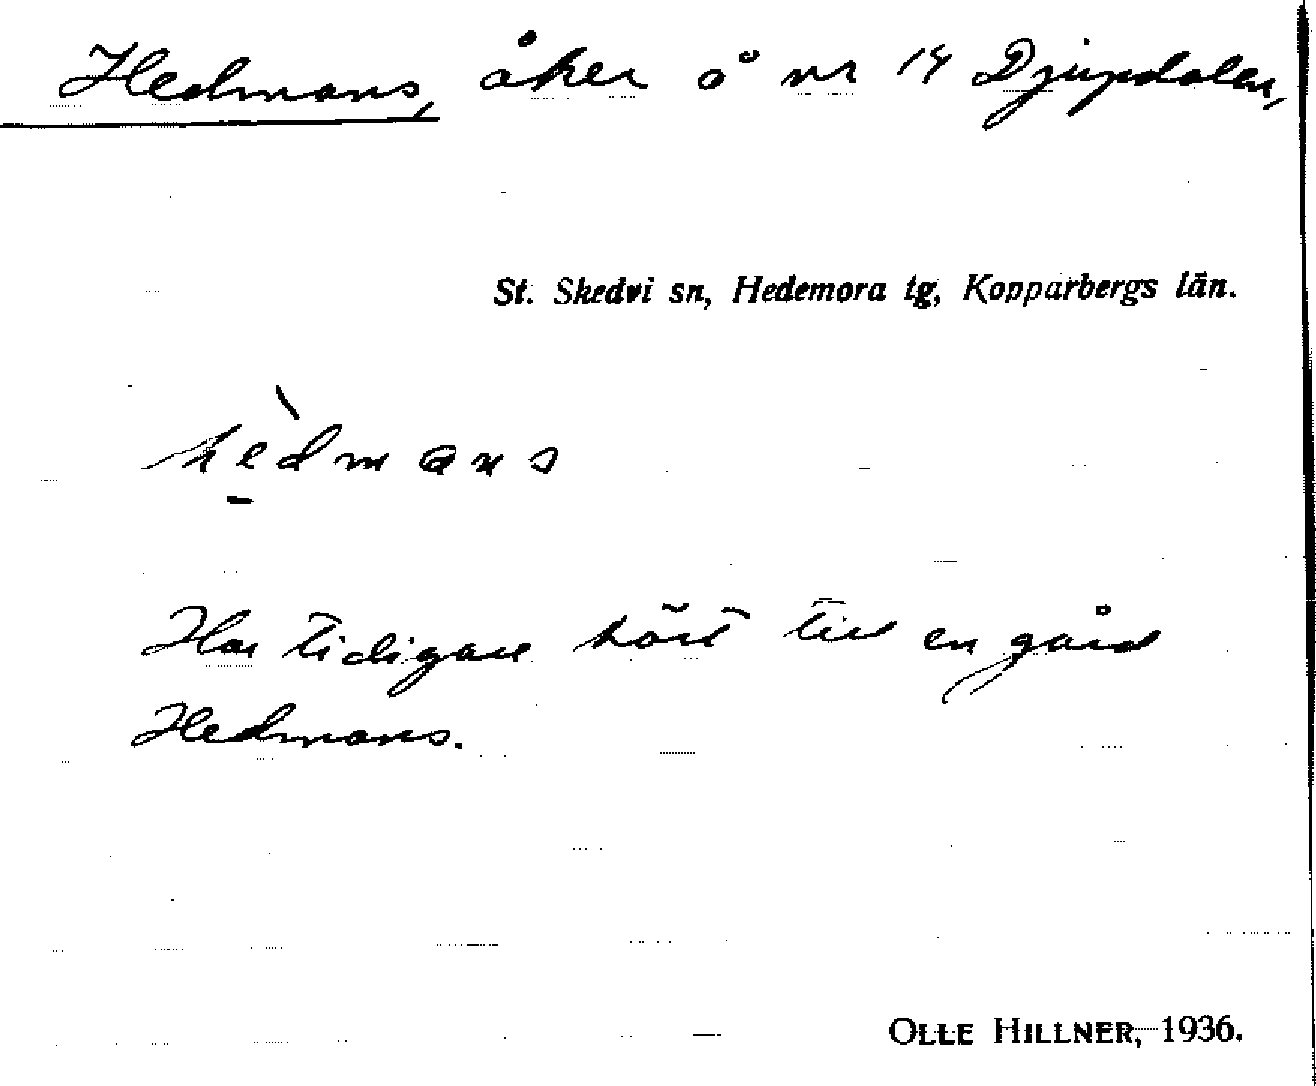 Hedmans, åker å nr 14 Djupdalen,
St. Skedvi sn, Hedemora tg, Kopparbergs län.
hèdmans
Har tidigare hört till en gård
Hedmans.
OLLE HILLNER, 1936.